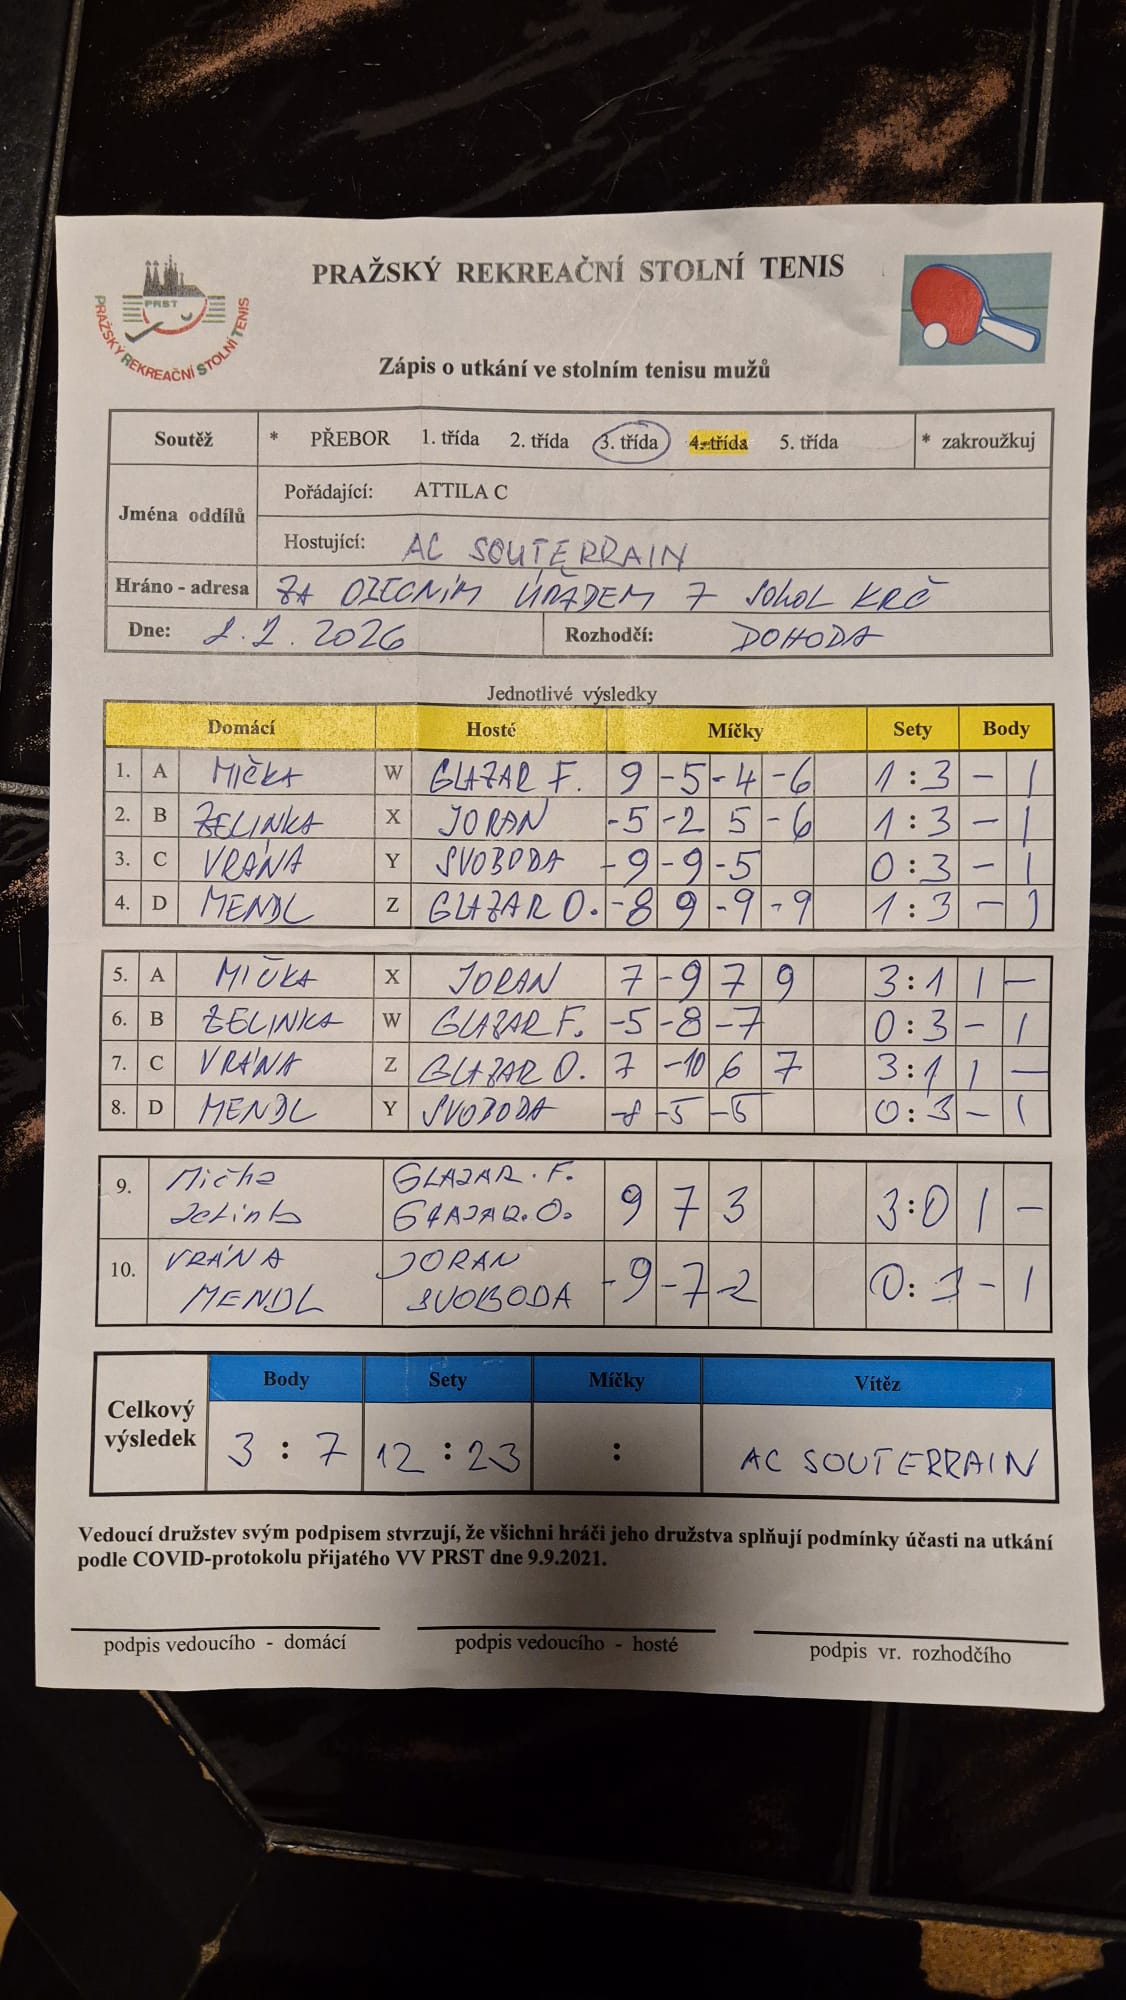 PRAŽSKÝ REKREAČNÍ STOLNÍ TENIS
PRST
PRAŽSKÝ REKREAČNÍ STOLNÍ TENIS
Zápis o utkání ve stolním tenisu mužů
Soutěž * PŘEBOR 1. třída 2. třída 3. třída 4. třída 5. třída * zakroužkuj
Jména oddílů
Pořádající: ATTILA C
Hostující: AC SOUTERRAIN
Hráno - adresa ZA OBECNÍM ÚŘADEM 7 SOKOL KRČ
Dne: 2.2.2026 Rozhodčí: DOHODA
Jednotlivé výsledky
Domácí Hosté Míčky Sety Body
1. A MIČKA W GLAZAR F. 9 -5 -4 -6 1:3 - 1
2. B ZELINKA X JORAN -5 -2 5 -6 1:3 - 1
3. C VRÁNA Y SVOBODA -9 -9 -5 0:3 - 1
4. D MENDL Z GLAZAR O. -8 9 -9 -9 1:3 - 1
5. A MIČKA X JORAN 7 -9 7 9 3:1 1 -
6. B ZELINKA W GLAZAR F. -5 -8 -7 0:3 - 1
7. C VRÁNA Z GLAZAR O. 7 -10 6 7 3:1 1 -
8. D MENDL Y SVOBODA -8 -5 -5 0:3 - 1
9. Mička GLAZAR. F. 9 7 3 3:0 1 -
Zelinka GLAZAR. O.
10. VRÁNA JORAN -9 -7 -2 0:3 - 1
MENDL SVOBODA
Celkový výsledek
Body Sety Míčky Vítěz
3 : 7 12 : 23 : AC SOUTERRAIN
Vedoucí družstev svým podpisem stvrzují, že všichni hráči jeho družstva splňují podmínky účasti na utkání
podle COVID-protokolu přijatého VV PRST dne 9.9.2021.
podpis vedoucího - domácí podpis vedoucího - hosté podpis vr. rozhodčího